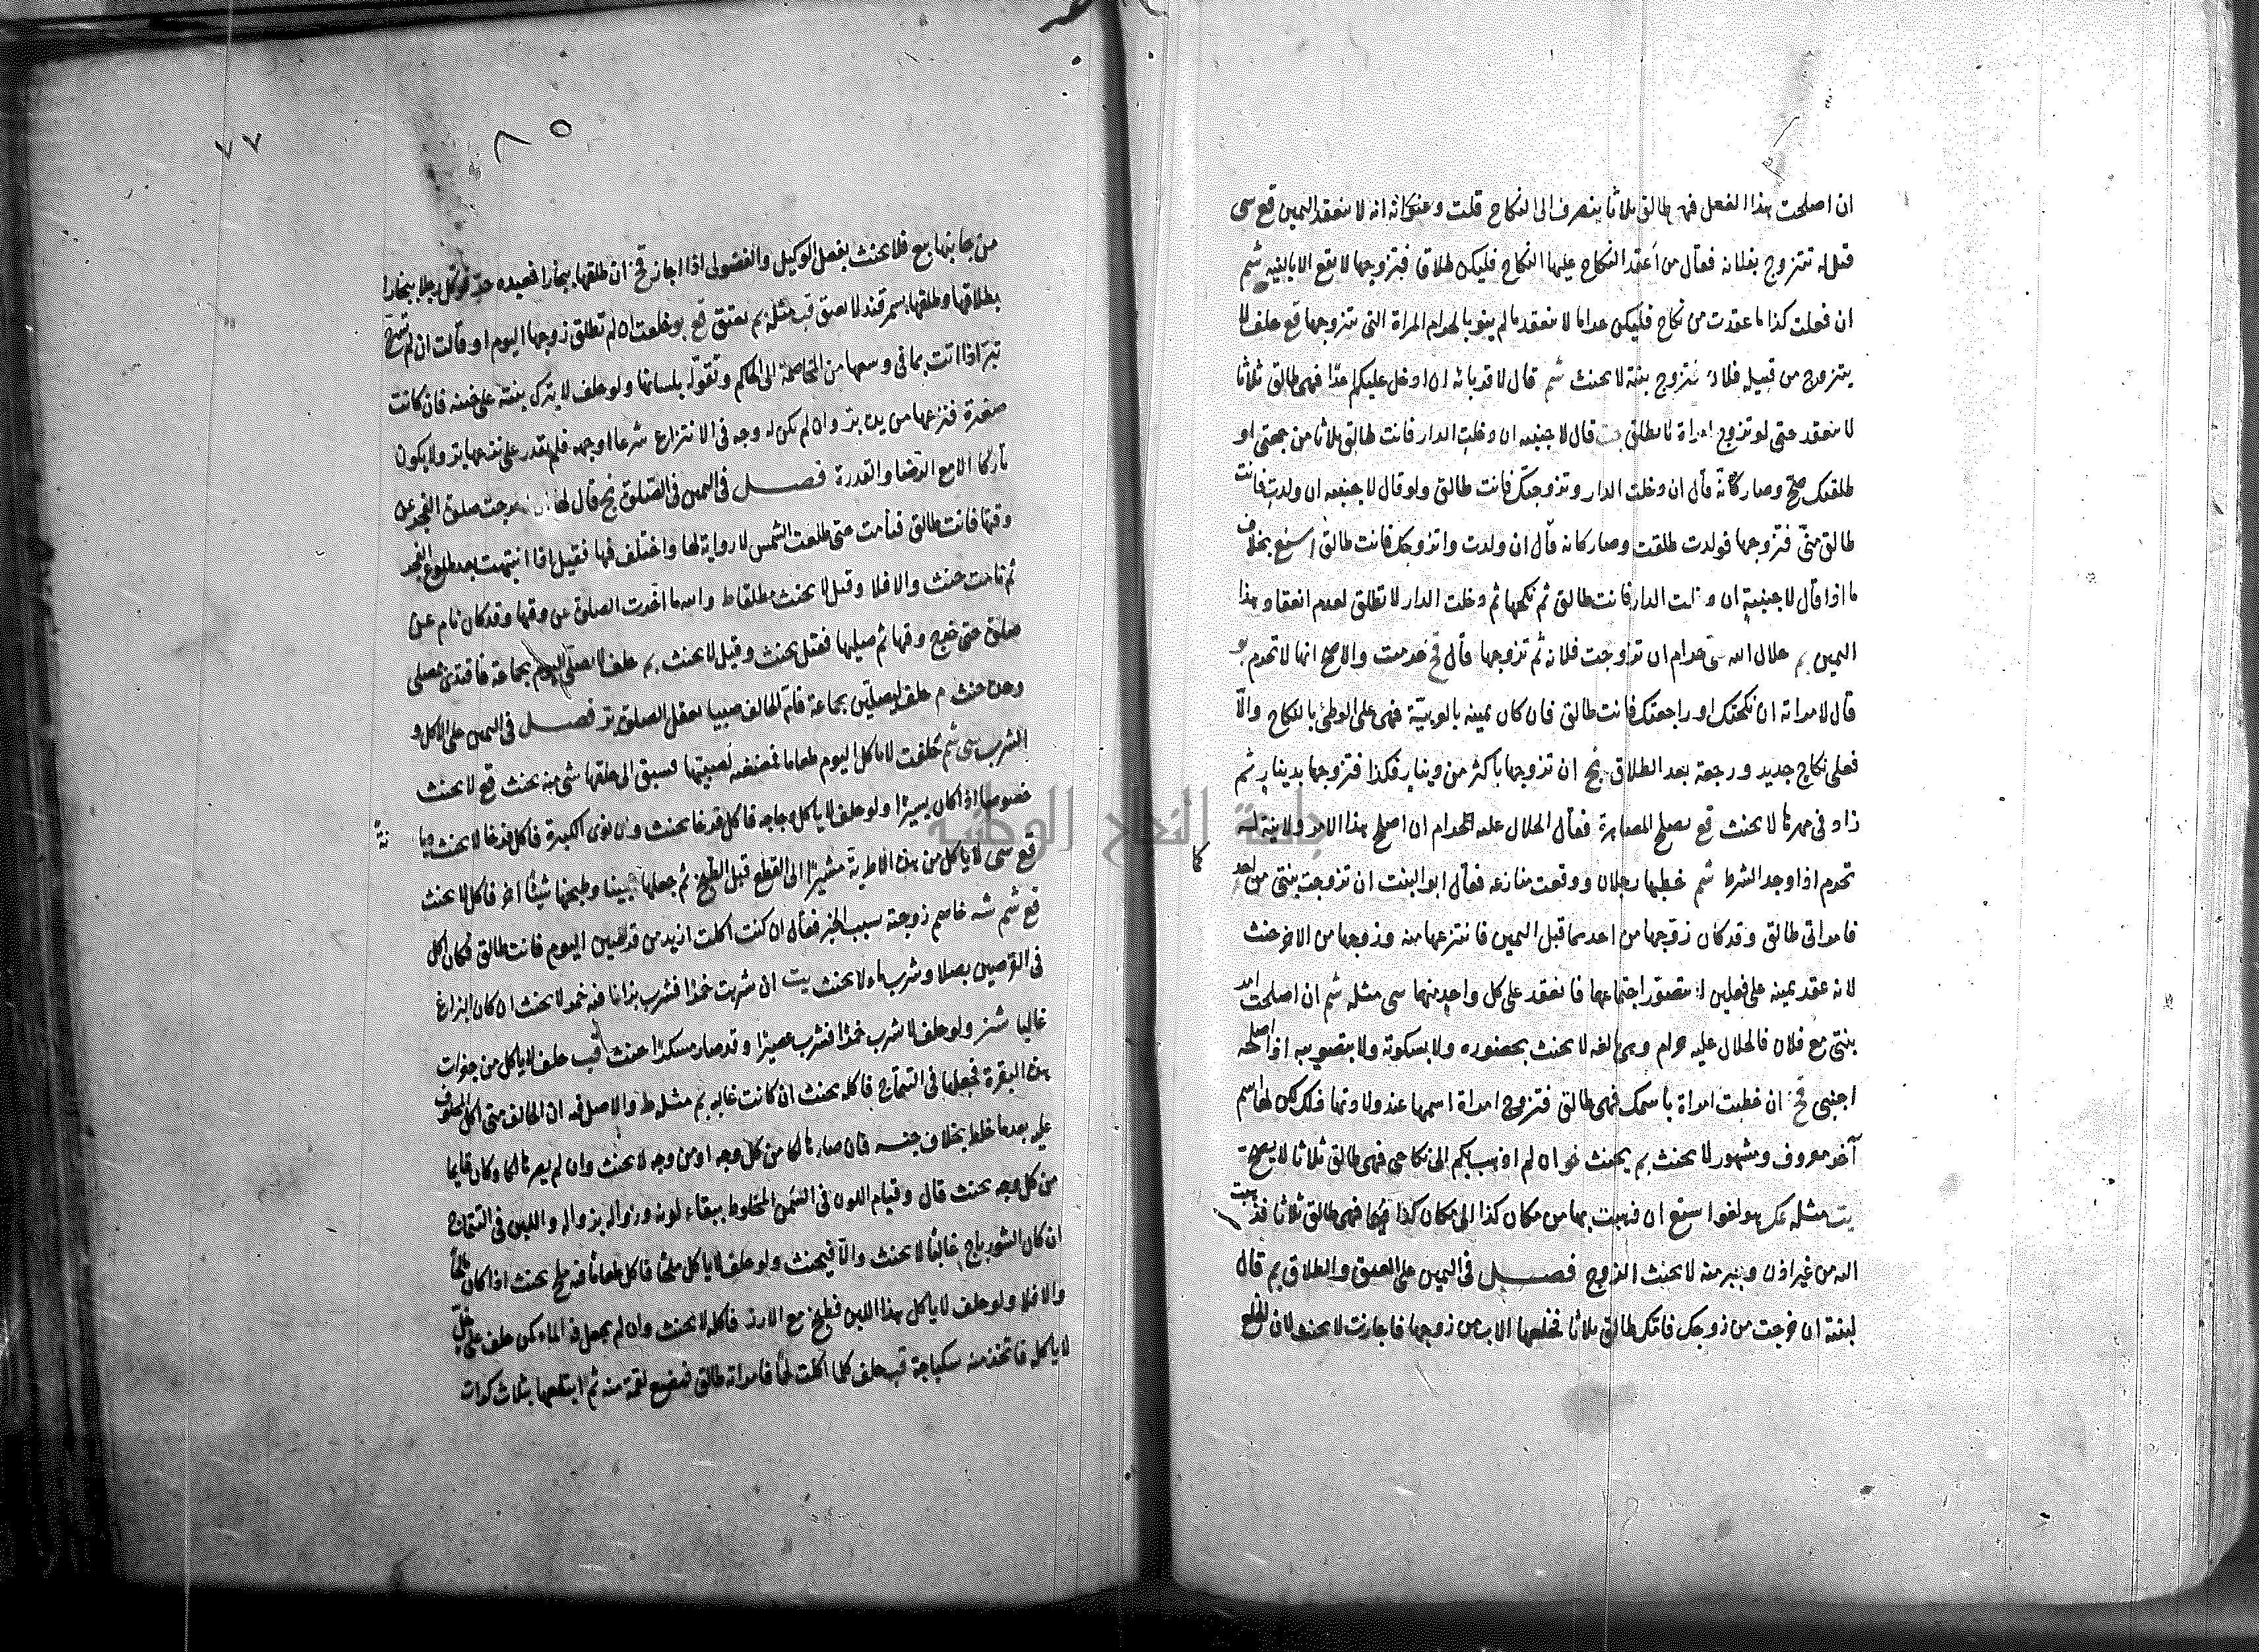 ان اصلحت بهذا الفعل فهى طالق ثلاثا ينصرف الى النكاح قلت وعنوانه انه لا ينعقد اليمين قع سى
قيل له تتزوج بفلانه فقال من أعقد النكاح عليها النكاح فليكن طلاق فتزوجها لا يقع الا بالنيه شم
ان فعلت كذا ما عقدت من نكاح فليكن حراما لا ينعقد ما لم ينو بالحرام المراة التى يتزوجها قع حلف لا
يتزوج من قبيله فلان فتزوج بنته لا يحنث شم قال لاقربائه ان ادخل عليكم غدا فهى طالق ثلاثا
لا ينعقد حتى لو تزوج امراة لا تطلق قال لاجنبيه ان دخلت الدار فانت طالق ثلاثا من جهتى او
طلقتك صح وصار كانه قال ان دخلت الدار وتزوجتك فانت طالق ولو قال لاجنبيه ان ولدت فانت
طالق منى فتزوجها فولدت طلقت وصار كانه قال ان ولدت وانزوجك فانت طالق اسنع بخلاف
ما اذا قال لاجنبية ان دخلت الدار فانت طالق ثم نكحها ثم دخلت الدار لا تطلق لعدم انعقاد هذا
اليمين بم حلال الله على حرام ان تزوجت فلانه ثم تزوجها قال فخ حرمت والاصح انها لا تحرم بو
قال لامراته ان نكحتك او راجعتك فانت طالق فان كان يمينه بالعربية فهى على الوطئ بالنكاح والا
فعلى نكاح جديد ورجعة بعد الطلاق بخ ان تزوجها باكثر من دينار فكذا فتزوجها بدينار ثم
زاد فى مهرها لا يحنث قع يصلح المصاهرة فقال الحلال عليه الحرام ان اصلح بهذا الامر ولا نية له
تحرم اذا وجد الشرط شم خطبها رجلان ووقعت منازعه فقال ابو البنت ان تزوجت بنتى من احد
فامراتى طالق وقد كان زوجها من احدهما قبل اليمين فانتزعها منه وزوجها من الاخر حنث
لانه عقد يمينه على فعلين لا يتصور اجتماعهما فانعقد على كل واحد منهما سى مثله شم ان اصلحت امر
بنتى مع فلان فالحلال عليه حرام وهى بالغه لا يحنث بحضوره ولا بسكوته ولا بتصويبه اذا اصلحه
اجنبى فخ ان خطبت امراة باسمك فهى طالق فتزوج امراة اسمها عند ولادتها فلك لكن لها اسم
آخر معروف ومشهور لا يحنث بم يحنث خو ان لم اذهب بكم الى نكاحى فهى طالق ثلاثا لا يصح
يت مثله عك هو لغو اسنع ان ذهبت بها من مكان كذا الى مكان كذا فهى طالق ثلاثا فذهبت
اليه من غير اذن وبيرمنه لا يحنث الزوج فصل فى اليمين على العتق والطلاق بم قال
لبنته ان خرجت من زوجك فامك طالق ثلاثا فخلعها الاب من زوجها فاجازت لا يحنث لان الخلع
٧٧
٨٥
من جانبها بيع فلا يحنث بفعل الوكيل والفضولى اذا اجاز فخ ان طلقها ببخارا فعبده حر فوكل رجلا ببخارا
بطلاقها وطلقها بسمرقند لا يعتق قب مثله بم يعتق قع بو خلعت ان لم تطلق زوجها اليوم او قالت ان لم
تبر اذا اتت بما فى وسعها من المخاصمة الى الحاكم وتقوله بلسانها ولو حلف لا يترك بنته على ختنه فان كانت
صغيرة فنزعها من يده بر وان لم يكن له وجه فى الانتزاع شرعا اوجبه فلم يقدر على نزعها بر ولا يكون
تاركا الا مع الرضا والقدرة فصل فى اليمين فى الصلوة بخ قال لها ان خرجت صلوة الفجر عن
وقتها فانت طالق فنامت حتى طلعت الشمس لا رواية لها واختلف فيها فقيل اذا انتبهت بعد طلوع الفجر
ثم نامت حنث والا فلا وقيل لا يحنث مطلقا ط والله ما اخرت الصلوة عن وقتها وقد كان نام عن
صلوة حتى خرج وقتها ثم صليها فقيل يحنث وقيل لا يحنث بم حلف لا يصلى اليوم بجماعة فاقتدى بصلى
وحده حنث م حلف ليصلين بجماعة فام الحالف صبيا يعقل الصلوة بر فصل فى اليمين على الاكل و
الشرب سى شم حلفت لا تاكل اليوم طعاما فمضغه لصبيتها فسبق الى حلقها شى منه يحنث قع لا يحنث
خصوصا اذا كان يسيرا ولو حلف لا ياكل دجاجه فاكل فرخا يحنث وان نوى الكبيرة فاكل فرخا لا يحنث
قع سى لا ياكل من هذه الاطرية مشيرا الى القطع قبل الطبخ ثم جعلها وطبخها شيئا اخر فاكل لا يحنث
قع شم شه خاصم زوجته بسبب الخبز فقال ان كنت اكلت ازيد من قرصين اليوم فانت طالق فكان اكل
فى القرصين بصلا وشرب ماء لا يحنث يت ان شربت خمرا فشرب بزاغا فيه خمر لا يحنث ان كان البزاغ
غالبا شز ولو حلف لا يشرب خمرا فشرب عصيرا وقد صار مسكرا حنث قب حلف لا ياكل من جزات
هذه البقرة فجعلها فى التتماج فاكله يحنث ان كانت غالبه بم مثله ط والاصل فيه ان الحالف متى اكل المحلوف
عليه بعدما خلط بخلاف جنسه فان صار هالكا من كل وجه او من وجه لا يحنث وان لم يصر هالكا وكان قايما
من كل وجه يحنث قال وقيام اللون فى السمن المخلوط ببقاء لونه وزواله بزواله واللبن فى التتماج
ان كان الشورباج غالبا لا يحنث والا فيحنث ولو حلف لا ياكل ملحا فاكل طعاما فيه ملح يحنث اذا كان مالحا
والا فلا ولو حلف لا ياكل بهذا اللبن فطبخ مع الارز فاكله لا يحنث وان لم يجعل فيه الماء كمن حلف على خل
لا ياكله فاتخذ منه سكباجة قب حلف كلما اكلت لحما فامراته طالق فمضغ لقمة منه ثم ابتلعها بثلاث كرات
جامعة النجاح الوطنية